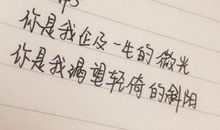 你是我企及一生的微光
你是我渴望轻倚的斜阳